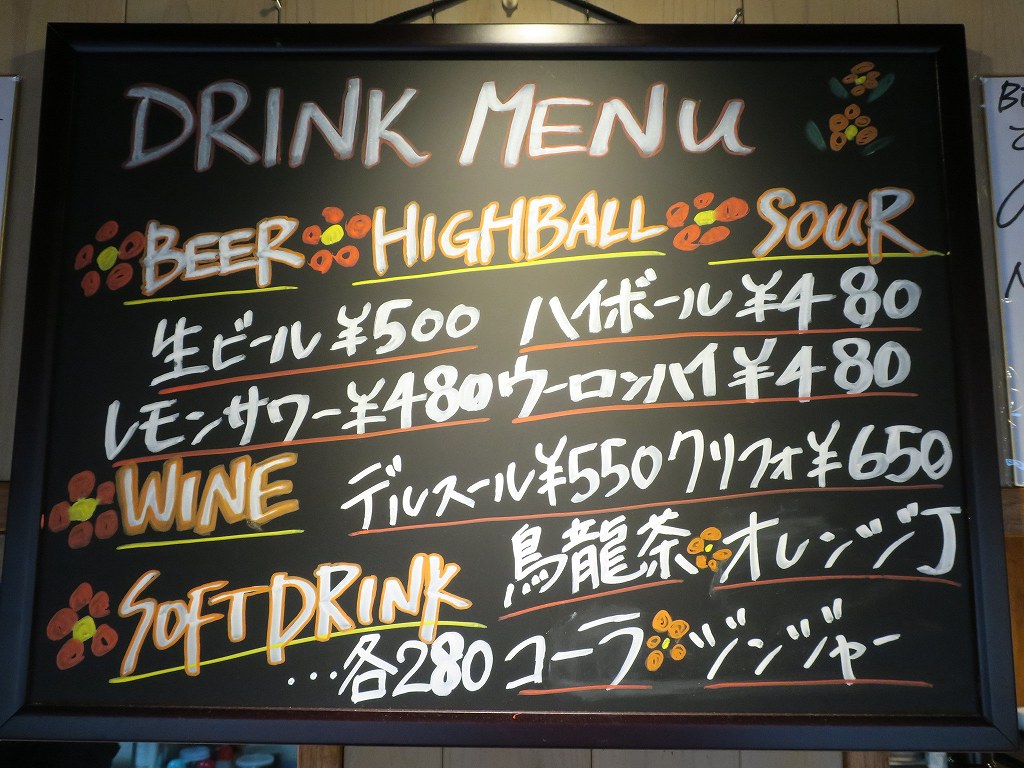 DRINK MENU
BEER HIGHBALL SOUR
生ビール ¥500 ハイボール ¥480
レモンサワー ¥480 ウーロンハイ ¥480
WINE デルスール ¥550 クリフォ ¥650
SOFT DRINK 烏龍茶 オレンジJ
…各280 コーラ ジンジャー